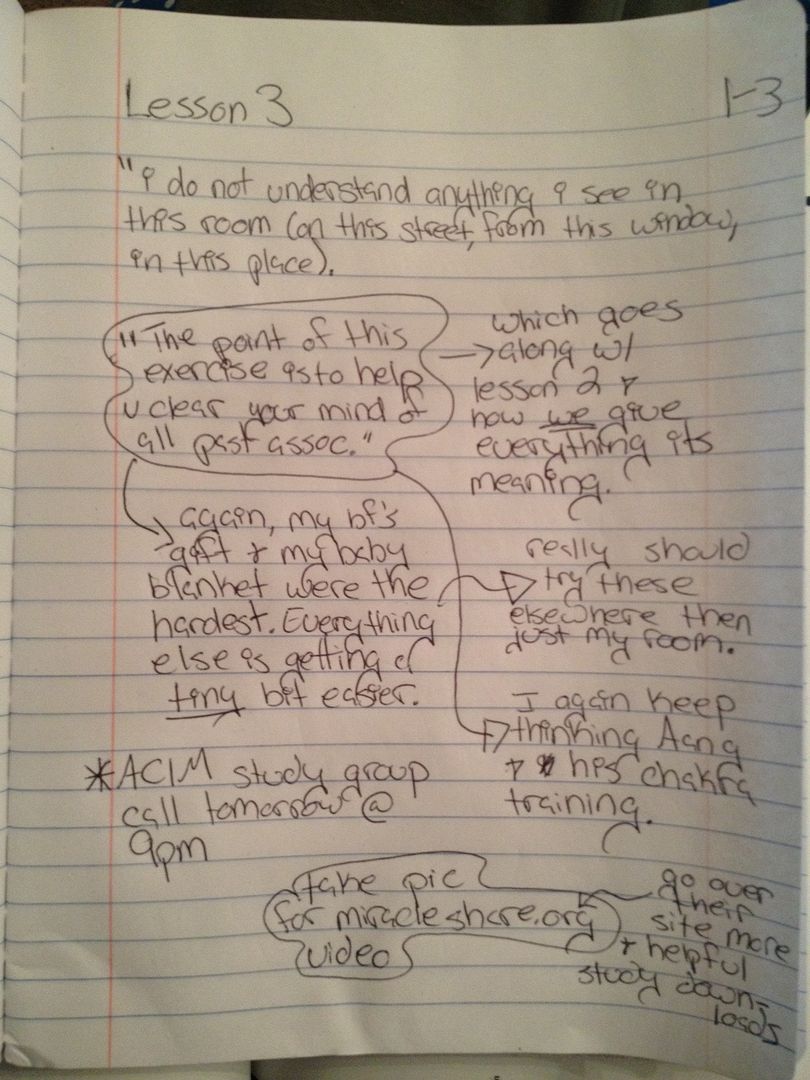 Lesson 3
1-3
"i do not understand anything i see in
this room (on this street, from this window,
in this place).
"The point of this
exercise is to help
u clear your mind of
all past assoc."
which goes
along w/
lesson 2 +
how we give
everything its
meaning.
again, my bf's
gift + my baby
blanket were the
hardest. Everything
else is getting a
tiny bit easier.
really should
try these
elsewhere then
just my room.
I again keep
thinking Aang
+ his chakra
training.
*ACIM study group
call tomorrow @
9pm
take pic
for miracleshare.org
video
go over
their
site more
+ helpful
study down-
loads